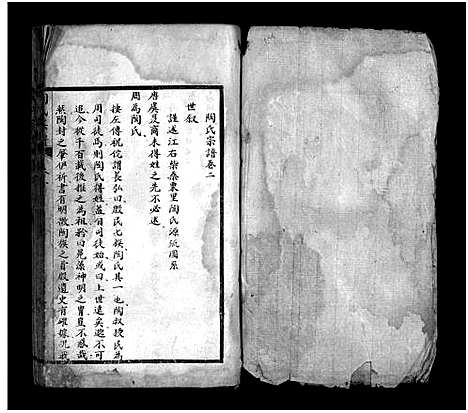 陶氏宗譜卷二
世叙
謹述江右柴桑栗里陶氏源流圖系
唐虞及商未得姓之先不必述
周為陶氏
按左傳祝佗謂萇弘曰殷民七族陶氏其一也陶叔授民為
周司徒焉則陶氏得姓蓋自司徒始或曰上世遠矣邈不可
追今從千百載後推之為祖於曰堯藻神明之胄豈不感哉
然陶封之肇伊祈書有明徵陶族之首殷遺史有確據況我